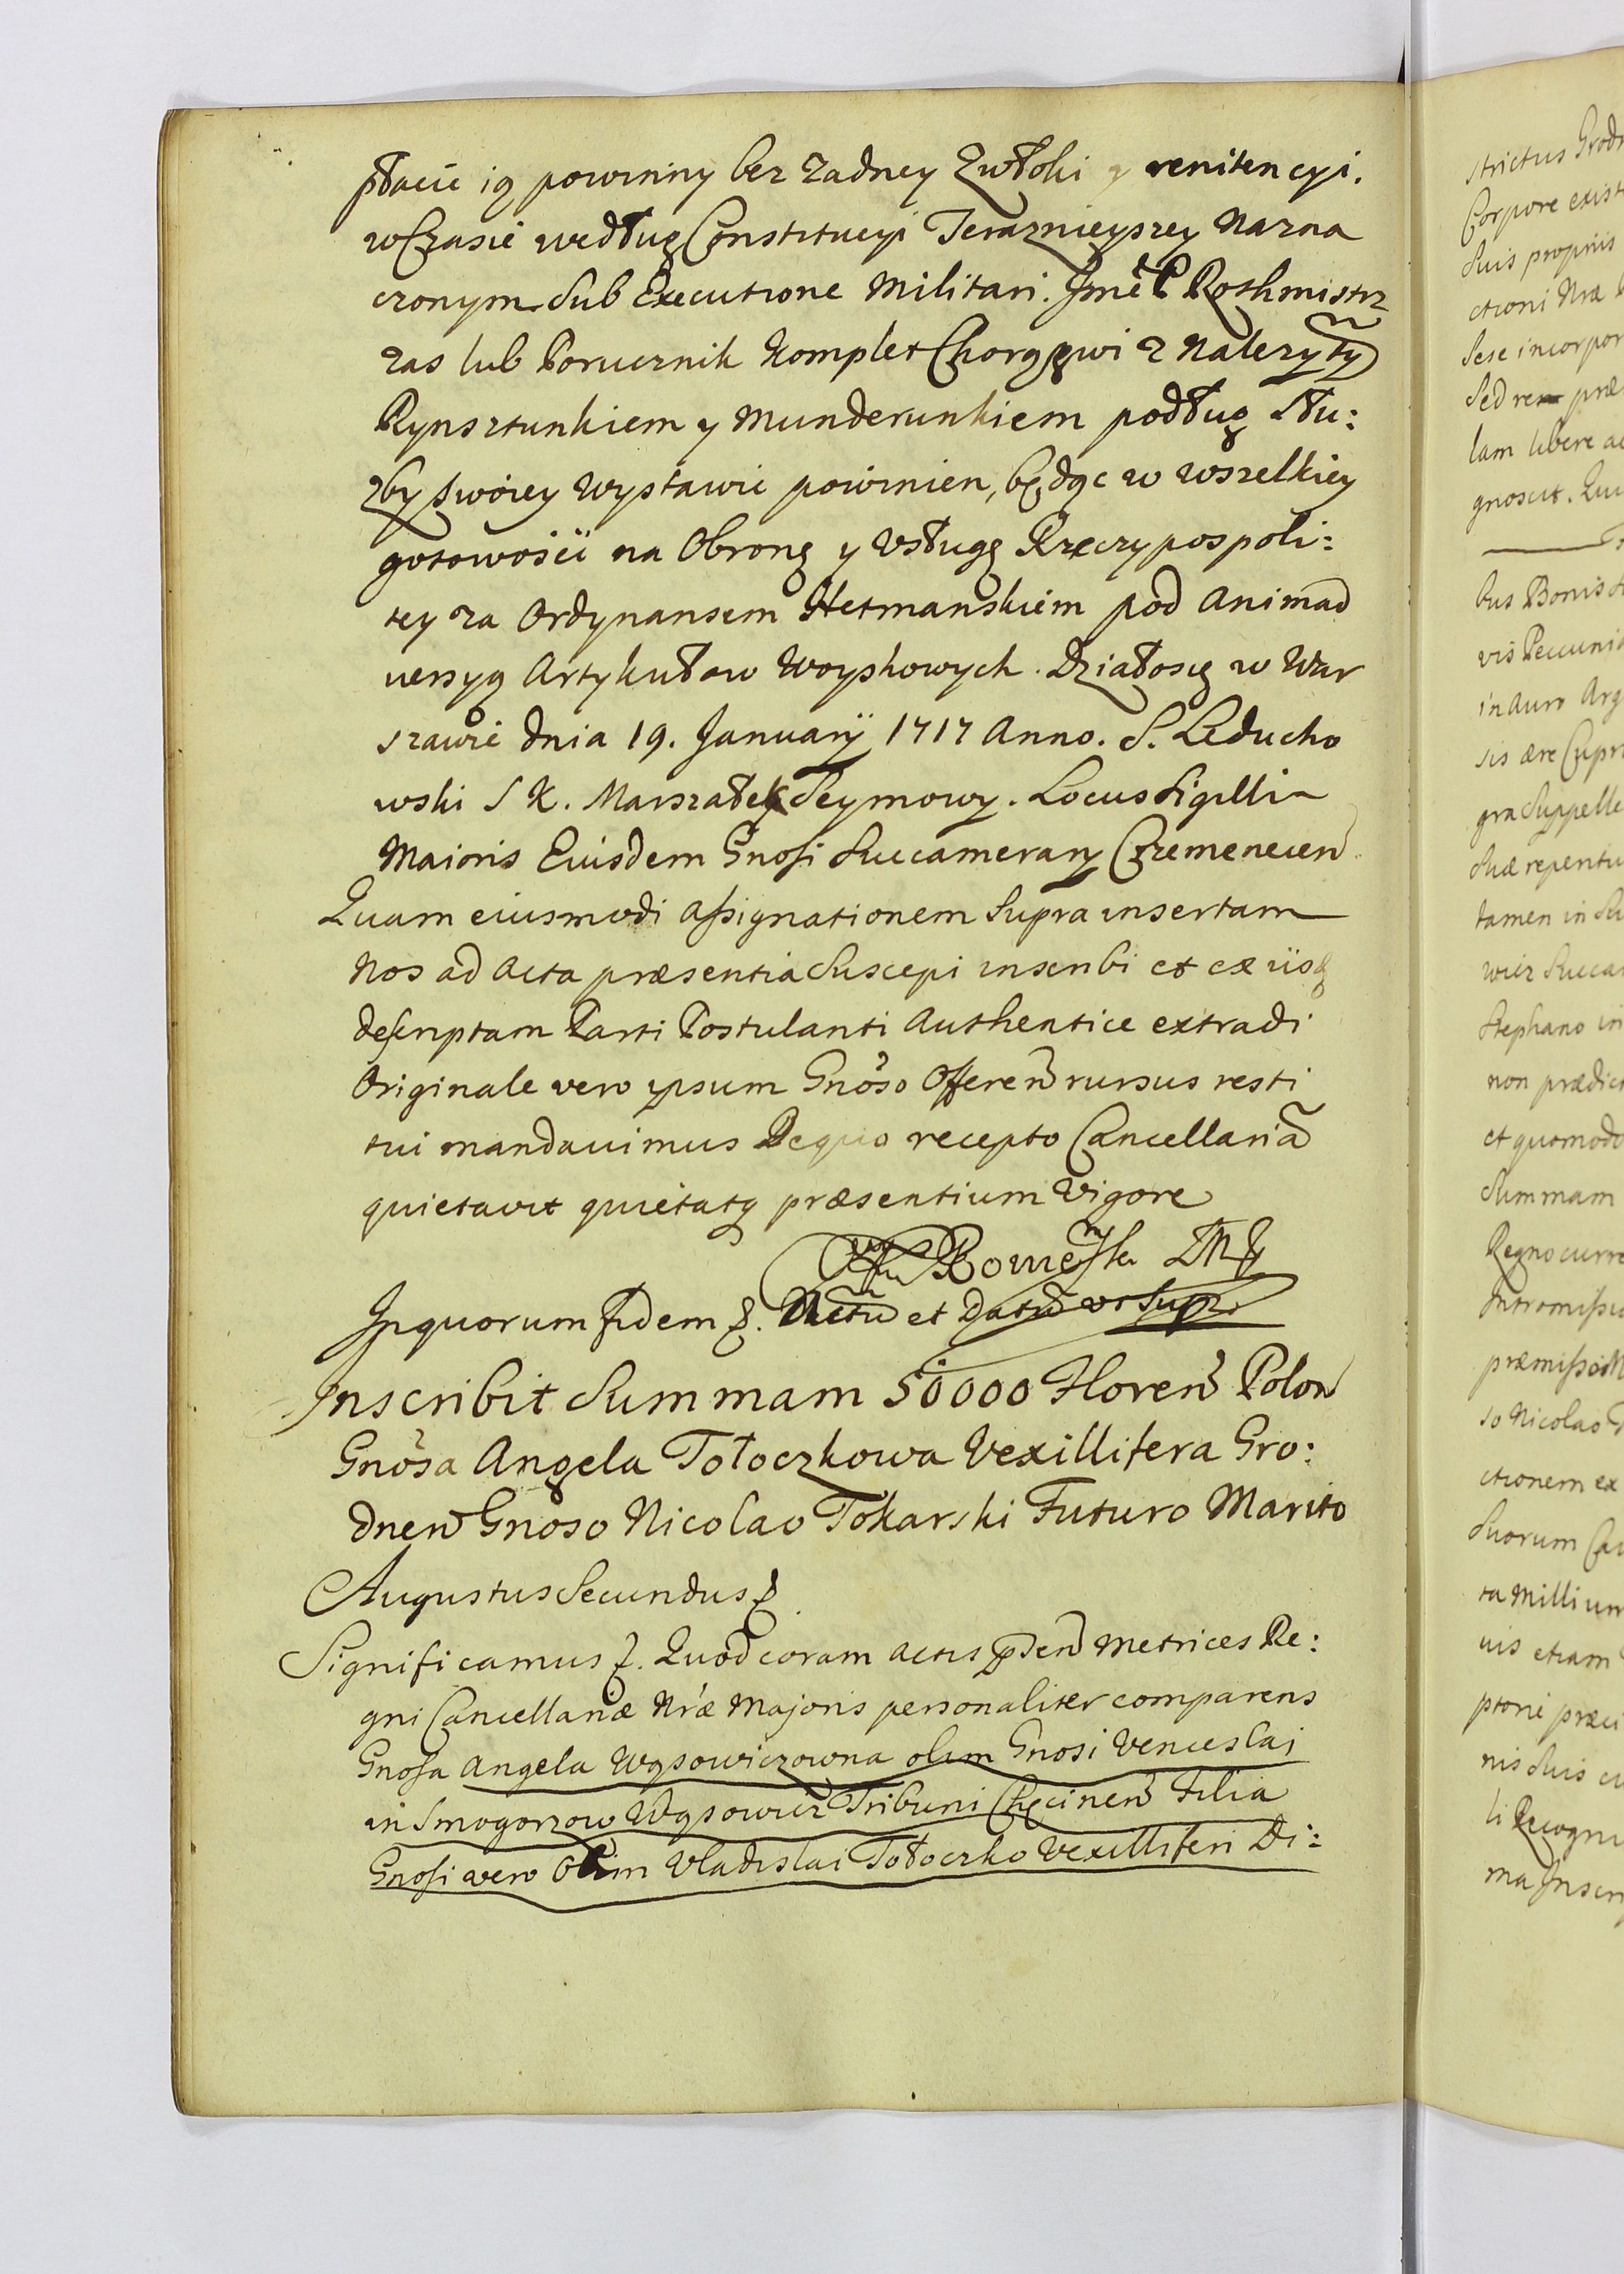 płacic ią powinny bez zadney Zwłoki y renitencyi.
w Czasie według Constitucyi Teraznieyszey Nazna
czonym Sub Executione Militari. Jmē P Rothmistrz
zas lub Porucznik Komplet Chorągwi z Nalezytỹ
Rynsztunkiem y Munderunkiem podług Słu:
zby swoiey Wystawic powinien, będąc w wszelkiey
gotowosci na Obronę y Vsługę Rzeczypospoli:
tey za Ordynansem Hetmanskiem pod Animad
uersyą Artykułow Woyskowych. Działosię w War
szawie dnia 19. Januarÿ 1717 Anno. S. Leducho
wski S K. Marszałek Seymowy. Locus Sigilli
Maioris Eiusdem Gnosi Succamerarÿ Czremenecen
Quam eiusmodi assignationem Supra insertam
Nos ad Acta præsentia Suscepi inscribi et ex iisq
descriptam Parti Postulanti Authentice extradi
Originale vero ipsum Gnoso Offeren rursus resti
tui mandauimus De quo recepto Cancellariã
quietavit quietatq præsentium Vigore
In quorum fidem &. Actũ et Datũ vt Supr
Inscribit Summam 50000 Floren Polon
Gnosa Angela Tołoczkowa Vexillifera Gro:
dnen Gnoso Nicolao Tokarski Futuro Marito
Augustus Secundus &.
Significamus &. Quod coram actis pden Metrices Re:
gni Cancellariæ Nræ Majoris personaliter comparens
Gnosa Angela Wąsowiczowna olim Gnosi Venceslai
in Smogorzow Wąsowicz Tribuni Chęcinen Filia
Gnosi vero Olim Vladislai Tołoczko Vexilliferi Di:
strictus Grodn
Corpore exist
Suis propriis
ctioni Nræ
Sese incorpor
Sed rem præ
lam libere ac
gnoscit.
bus Bonis
vis Pecunia
in Auro Arg
sis ære Cupr
gra Suppelle
Suæ reperitu
tamen in Su
wicz Succam
Stephano in
non prædict
et quomodo
Summam
Regno curre
Intromissi
præmissor
so Nicolao
ctionem ex
Suorum
ta Millium
uis etiam
ptorie præci
nis Suis
li Recogni
ma Inscri